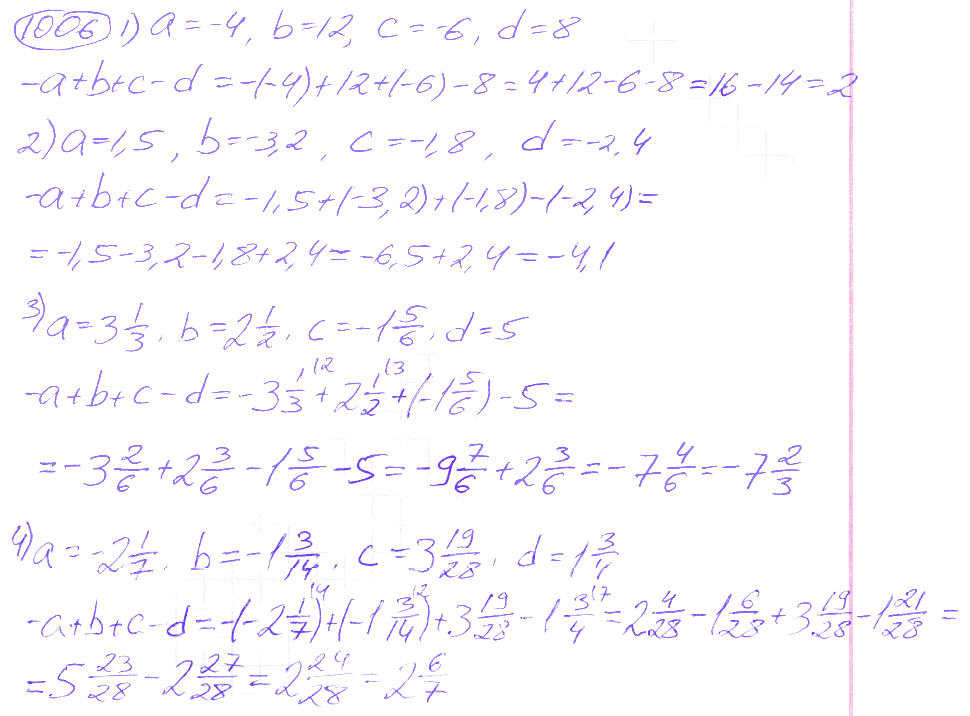 1006 1) a = -4, b = 12, c = -6, d = 8
-a+b+c-d = -(-4)+12+(-6)-8 = 4+12-6-8 = 16-14 = 2
2) a = 1,5, b = -3,2, c = -1,8, d = -2,4
-a+b+c-d = -1,5+(-3,2)+(-1,8)-(-2,4) =
= -1,5-3,2-1,8+2,4 = -6,5+2,4 = -4,1
3) a = 3 1/3, b = 2 1/2, c = -1 5/6, d = 5
-a+b+c-d = -3 1/3 (2 + 2 1/2 (3 + (-1 5/6) - 5 =
= -3 2/6 + 2 3/6 - 1 5/6 - 5 = -9 7/6 + 2 3/6 = -7 4/6 = -7 2/3
4) a = -2 1/7, b = -1 3/14, c = 3 19/28, d = 1 3/4
-a+b+c-d = -(-2 1/7 (4) + (-1 3/14 (2) + 3 19/28 - 1 3/4 (7 = 2 4/28 - 1 6/28 + 3 19/28 - 1 21/28 =
= 5 23/28 - 2 27/28 = 2 24/28 = 2 6/7